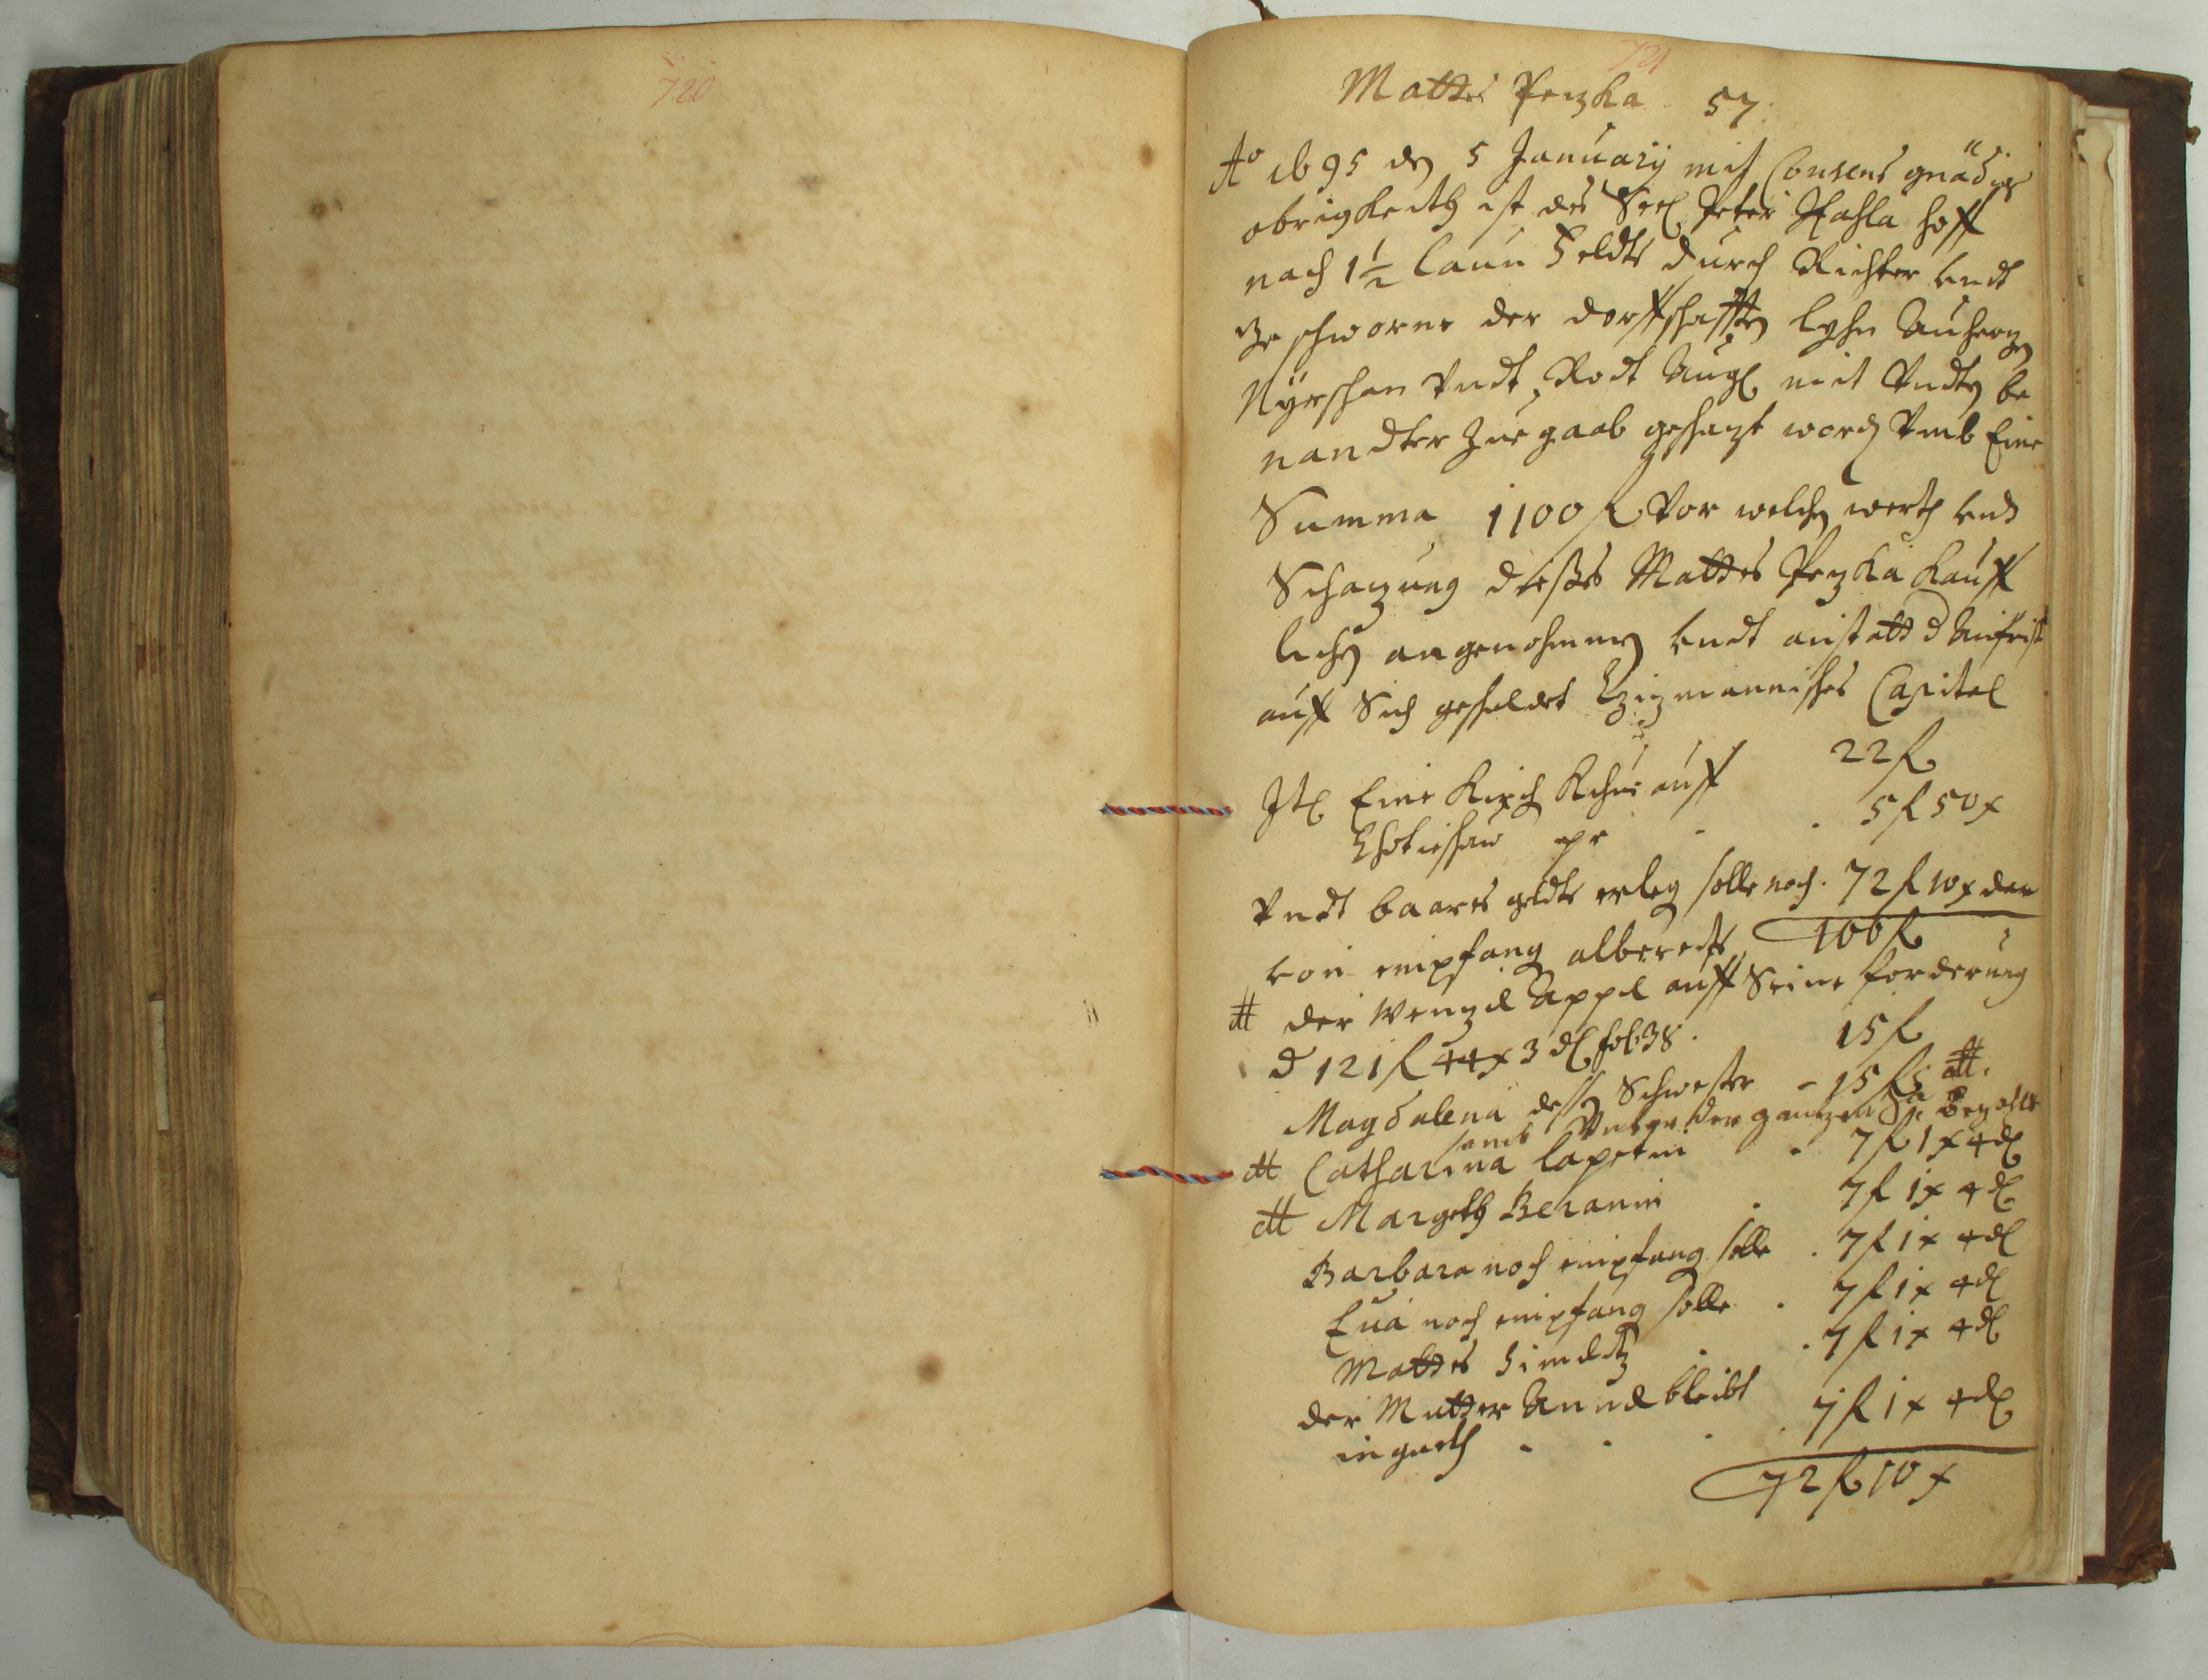 720
721
Mattes Pezka 57.
Ao 1695 den 5 January mit Consens gnädig
obrigkeith ist des Seel Peter Hahla hoff
nach 1½ laun Feldts durch Richter undt
Geschworne der dorffschafften lyhn Auherzen
Nÿrschan Undt Rodt Augl mit Undten be
nandter Zuegaab geschazt worden Umb Eine
Summa 1100 fl Vor welchen werth und
Schazung dießes Mattes Pezka Kauff
lichen angenohmmen undt anstatt d Anfrist
auff Sich gehaldet Czizmannisches Capital
22 fl
Itl Eine Kirch Kuhe auff
Chotieschau pr . . 5 fl 50 x
Undt baares geldts erleg solle noch . 72 fl 10 x dar
von empfang albereits 100 fl
dt der Wenzl Appl auff Seine forderung
d 121 fl 44 x 3 dl fol 38 . 15 fl
Magdalena dessen Schwester - 15 fl dt.
der ganzen Sa bezahlt
dt Catharina lapetin . 7 fl 1 x 4 dl
dt Margeth Beranin . 7 fl 1 x 4 dl
Barbara noch empfang solle . 7 fl 1 x 4 dl
Eua noch empfang solle . 7 fl 1 x 4 dl
Mattes . . 7 fl 1 x 4 dl
der Mutter Annal bleibt
in gueth - - . . 7 fl 1 x 4 dl
72 fl 10 x